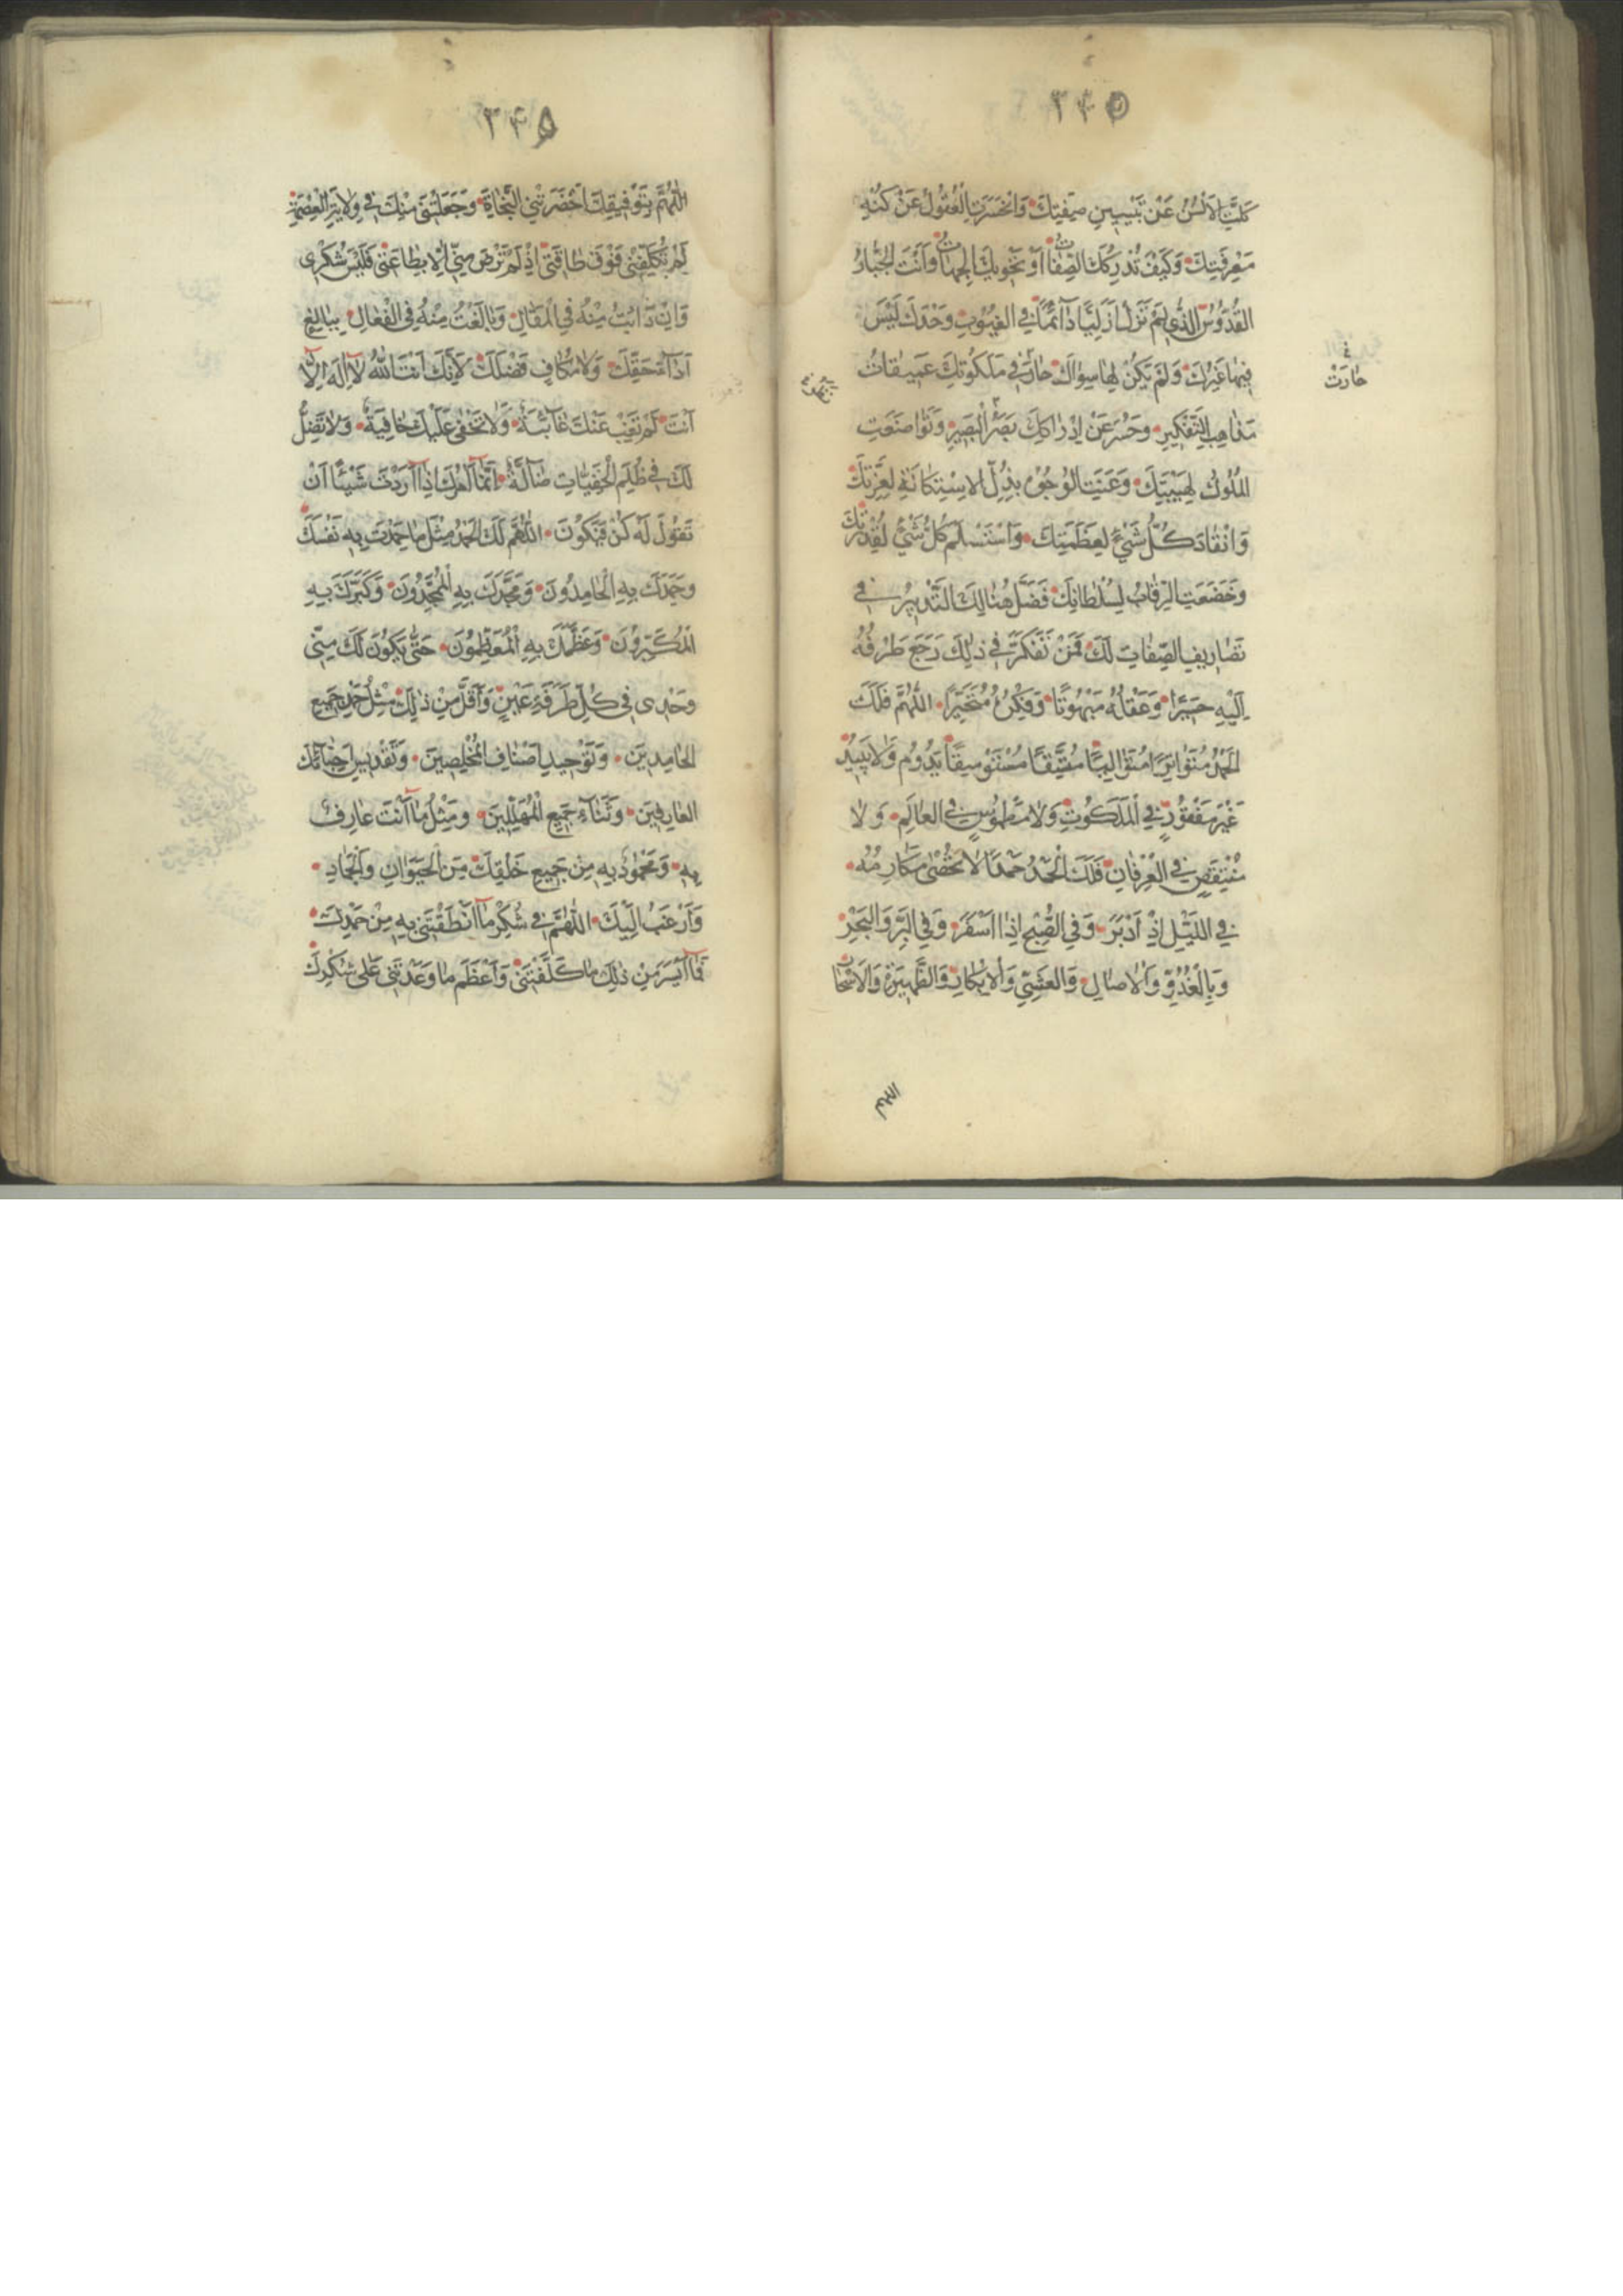 ٣٤٥
كَلَّتِ الْاَلْسُنُ عَنْ تَبْيِينِ صِفَتِكَ وَانْحَسَرَتِ الْعُقُولُ عَنْ كُنْهِ
مَعْرِفَتِكَ وَكَيْفَ تُدْرِكُكَ الصِّفَاتُ اَوْ تَحْوِيكَ الْجِهَاتُ وَاَنْتَ الْجَبَّارُ
الْقُدُّوسُ الَّذِي لَمْ تَزَلْ اَزَلِيًّا دَآئِمًا فِي الْغُيُوبِ وَحْدَكَ لَيْسَ
فِيهَا غَيْرُكَ وَلَمْ يَكُنْ لَهَا سِوَاكَ حَارَتْ فِي مَلَكُوتِكَ عَمِيقَاتُ
حَارَتْ
مَذَاهِبِ التَّفْكِيرِ وَحَسَرَ عَنْ اِدْرَاكِكَ بَصَرُ الْبَصِيرِ وَتَوَاضَعَتِ
الْمُلُوكُ لِهَيْبَتِكَ وَعَنَتِ الْوُجُوهُ بِذُلِّ الْاِسْتِكَانَةِ لِعِزَّتِكَ
وَانْقَادَ كُلُّ شَيْءٍ لِعَظَمَتِكَ وَاسْتَسْلَمَ كُلُّ شَيْءٍ لِقُدْرَتِكَ
وَخَضَعَتِ الرِّقَابُ لِسُلْطَانِكَ فَضَلَّ هُنَالِكَ التَّدْبِيرُ فِي
تَصَارِيفِ الصِّفَاتِ لَكَ فَمَنْ تَفَكَّرَ فِي ذٰلِكَ رَجَعَ طَرْفُهُ
اِلَيْهِ حَسِيرًا وَعَقْلُهُ مَبْهُوتًا وَفِكْرُهُ مُتَحَيِّرًا اَللّٰهُمَّ فَلَكَ
الْحَمْدُ مُتَوَاتِرًا مُتَوَالِيًا مُتَّسِقًا مُسْتَوْسِقًا يَدُومُ وَلَا يَبِيدُ
غَيْرَ مَفْقُودٍ فِي الْمَلَكُوتِ وَلَا مَطْمُوسٍ فِي الْعَالَمِ وَلَا
مُنْتَقَصٍ فِي الْعِرْفَانِ فَلَكَ الْحَمْدُ حَمْدًا لَا تُحْصٰى مَكَارِمُهُ
فِي اللَّيْلِ اِذْ اَدْبَرَ وَفِي الصُّبْحِ اِذَا اَسْفَرَ وَفِي الْبَرِّ وَالْبَحْرِ
وَبِالْغُدُوِّ وَالْاٰصَالِ وَالْعَشِيِّ وَالْاِبْكَارِ وَالظَّهِيرَةِ وَالْاَسْحَارِ
اللهم
٣٤٥
اَللّٰهُمَّ بِتَوْفِيقِكَ اَحْضَرْتَنِي النَّجَاةَ وَجَعَلْتَنِي مِنْكَ فِي وِلَايَةِ الْعِصْمَةِ
لَمْ تُكَلِّفْنِي فَوْقَ طَاقَتِي اِذْ لَمْ تَرْضَ مِنِّي اِلَّا بِطَاعَتِي فَلَيْسَ شُكْرِي
وَاِنْ دَاَبْتُ مِنْهُ فِي الْمَقَالِ وَبَالَغْتُ مِنْهُ فِي الْفَعَالِ بِبَالِغِ
اَدَآءِ حَقِّكَ وَلَا مُكَافٍ فَضْلَكَ لِاَنَّكَ اَنْتَ اللّٰهُ لَآ اِلٰهَ اِلَّآ
اَنْتَ لَمْ تَغِبْ عَنْكَ غَآئِبَةٌ وَلَا تَخْفٰى عَلَيْكَ خَافِيَةٌ وَلَا تَضِلُّ
لَكَ فِي ظُلَمِ الْخَفِيَّاتِ ضَآلَّةٌ اِنَّمَآ اَمْرُكَ اِذَآ اَرَدْتَ شَيْئًا اَنْ
تَقُولَ لَهُ كُنْ فَيَكُونَ اَللّٰهُمَّ لَكَ الْحَمْدُ مِثْلَ مَا حَمِدْتَ بِهِ نَفْسَكَ
وَحَمِدَكَ بِهِ الْحَامِدُونَ وَمَجَّدَكَ بِهِ الْمُمَجِّدُونَ وَكَبَّرَكَ بِهِ
الْمُكَبِّرُونَ وَعَظَّمَكَ بِهِ الْمُعَظِّمُونَ حَتّٰى يَكُونَ لَكَ مِنِّي
وَحْدِي فِي كُلِّ طَرْفَةِ عَيْنٍ وَاَقَلَّ مِنْ ذٰلِكَ مِثْلُ حَمْدِ جَمِيعِ
الْحَامِدِينَ وَتَوْحِيدِ اَصْنَافِ الْمُخْلِصِينَ وَتَقْدِيسِ اَحِبَّآئِكَ
الْعَارِفِينَ وَثَنَآءِ جَمِيعِ الْمُهَلِّلِينَ وَمِثْلُ مَآ اَنْتَ عَارِفٌ
بِهِ وَمَحْمُودٌ بِهِ مِنْ جَمِيعِ خَلْقِكَ مِنَ الْحَيَوَانِ وَالْجَمَادِ
وَاَرْغَبُ اِلَيْكَ اَللّٰهُمَّ فِي شُكْرِ مَآ اَنْطَقْتَنِي بِهِ مِنْ حَمْدِكَ
فَمَآ اَيْسَرَ مِنْ ذٰلِكَ مَا كَلَّفْتَنِي وَاَعْظَمَ مَا وَعَدْتَنِي عَلٰى شُكْرِكَ